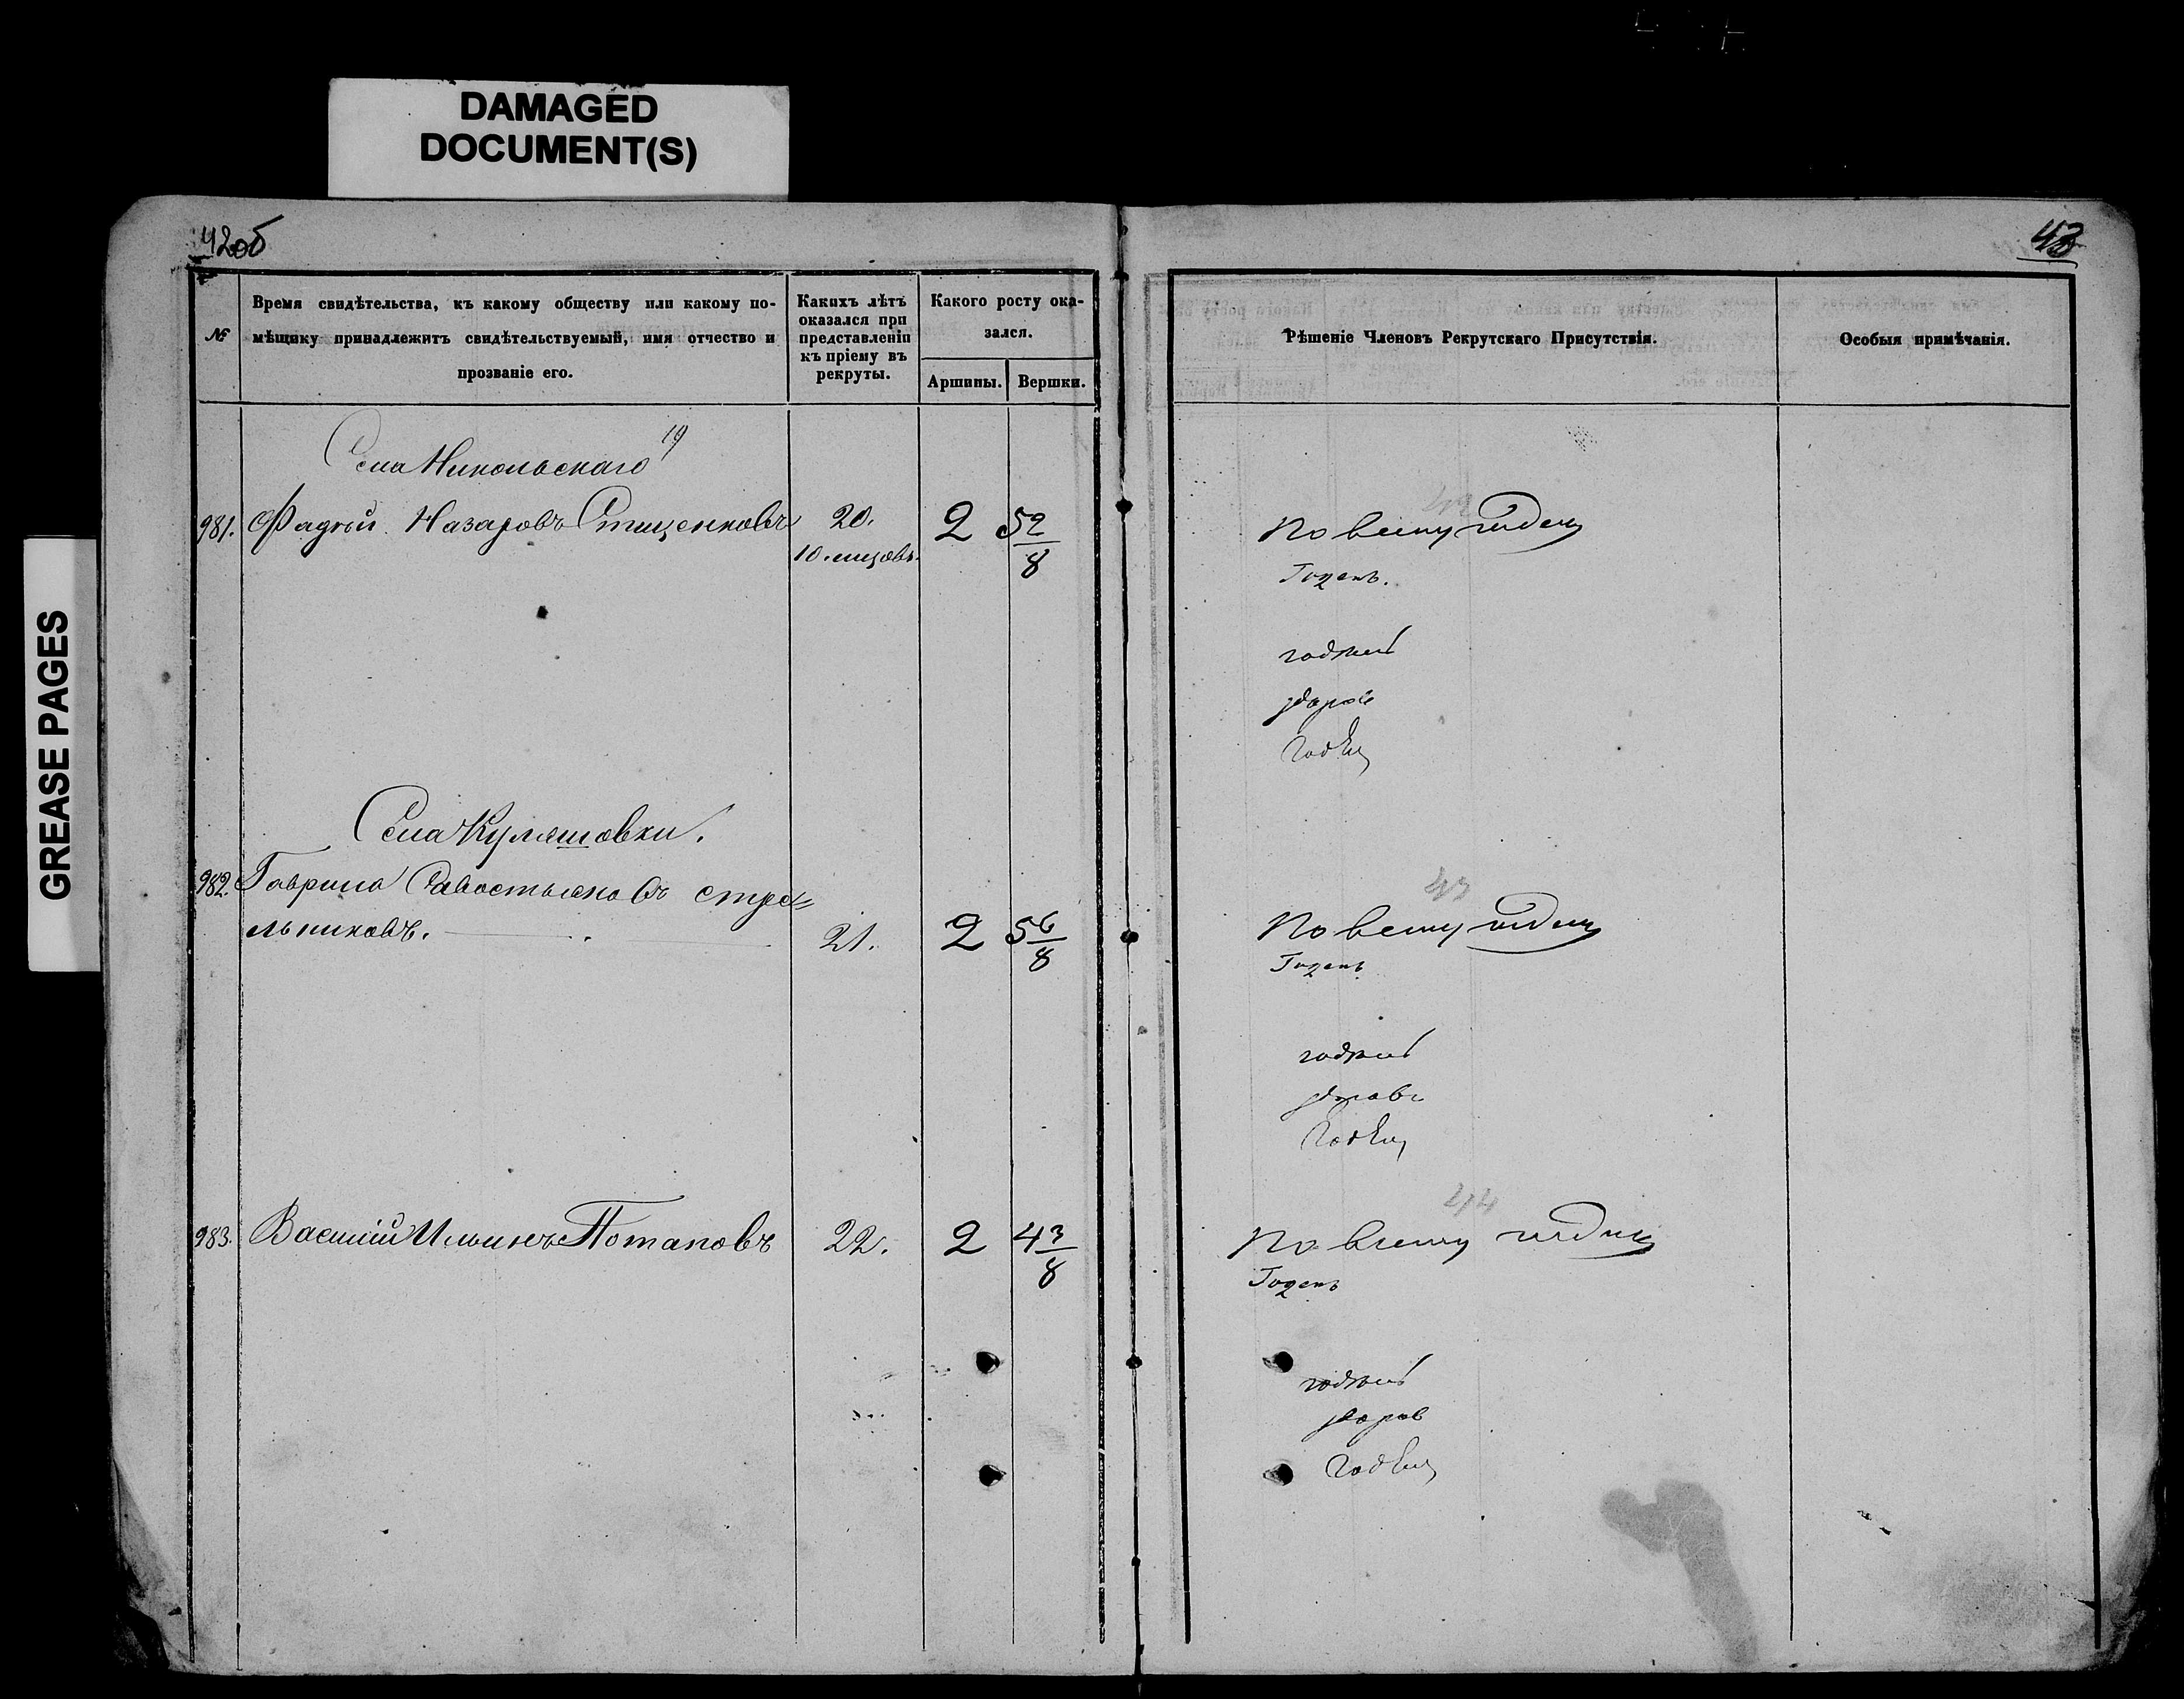 DAMAGED
DOCUMENT(S)
GREASE PAGES
42об
№
Время свидѣтельства, къ какому обществу или какому по-
мѣщику принадлежитъ свидѣтельствуемый, имя отчество и
прозваніе его.
Какихъ лѣтъ
оказался при
представленіи
къ пріему въ
рекруты.
Какого росту ока-
зался.
Аршины.
Вершки.
Села Никольскаго 19
981. Фадѣй Назаровъ Стиценковъ 20. 2 5 2/8
10. мцовъ.
Села Куляшовки.
982. Гаврило Савостьяновъ стре=
льниковъ. 21. 2 5 6/8
983. Василій Ильинъ Потаповъ 22. 2 4 3/8
43
Рѣшеніе Членовъ Рекрутскаго Присутствія.
Особыя примѣчанія.
42
По всему годенъ
Годенъ.
годный
здоров
Годенъ
43
По всему годенъ
Годенъ
годный
здоровъ
Годенъ
44
По всему годенъ
Годенъ
годный
здоров
Годенъ